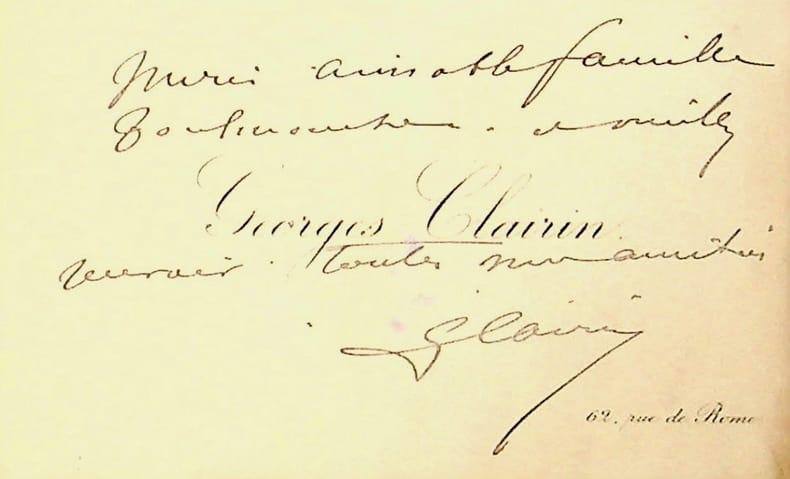 Merci aimable famille
Toulmouche. et veuillez
Georges Clairin
recevoir toutes mes amitiés
GClairin
62, rue de Rome